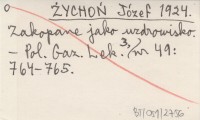 ŻYCHOŃ Józef 1924.
Zakopane jako uzdrowisko.
- Pol. Gaz. Lek. 3, nr 49:
764-765.